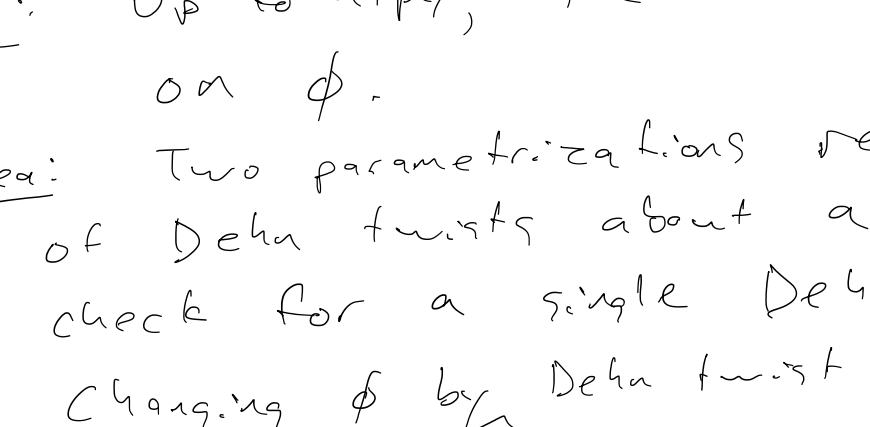 on ϕ.
Two parametrizations
of Dehn twists about a
check for a single Deh
Changing ϕ by Dehn twist